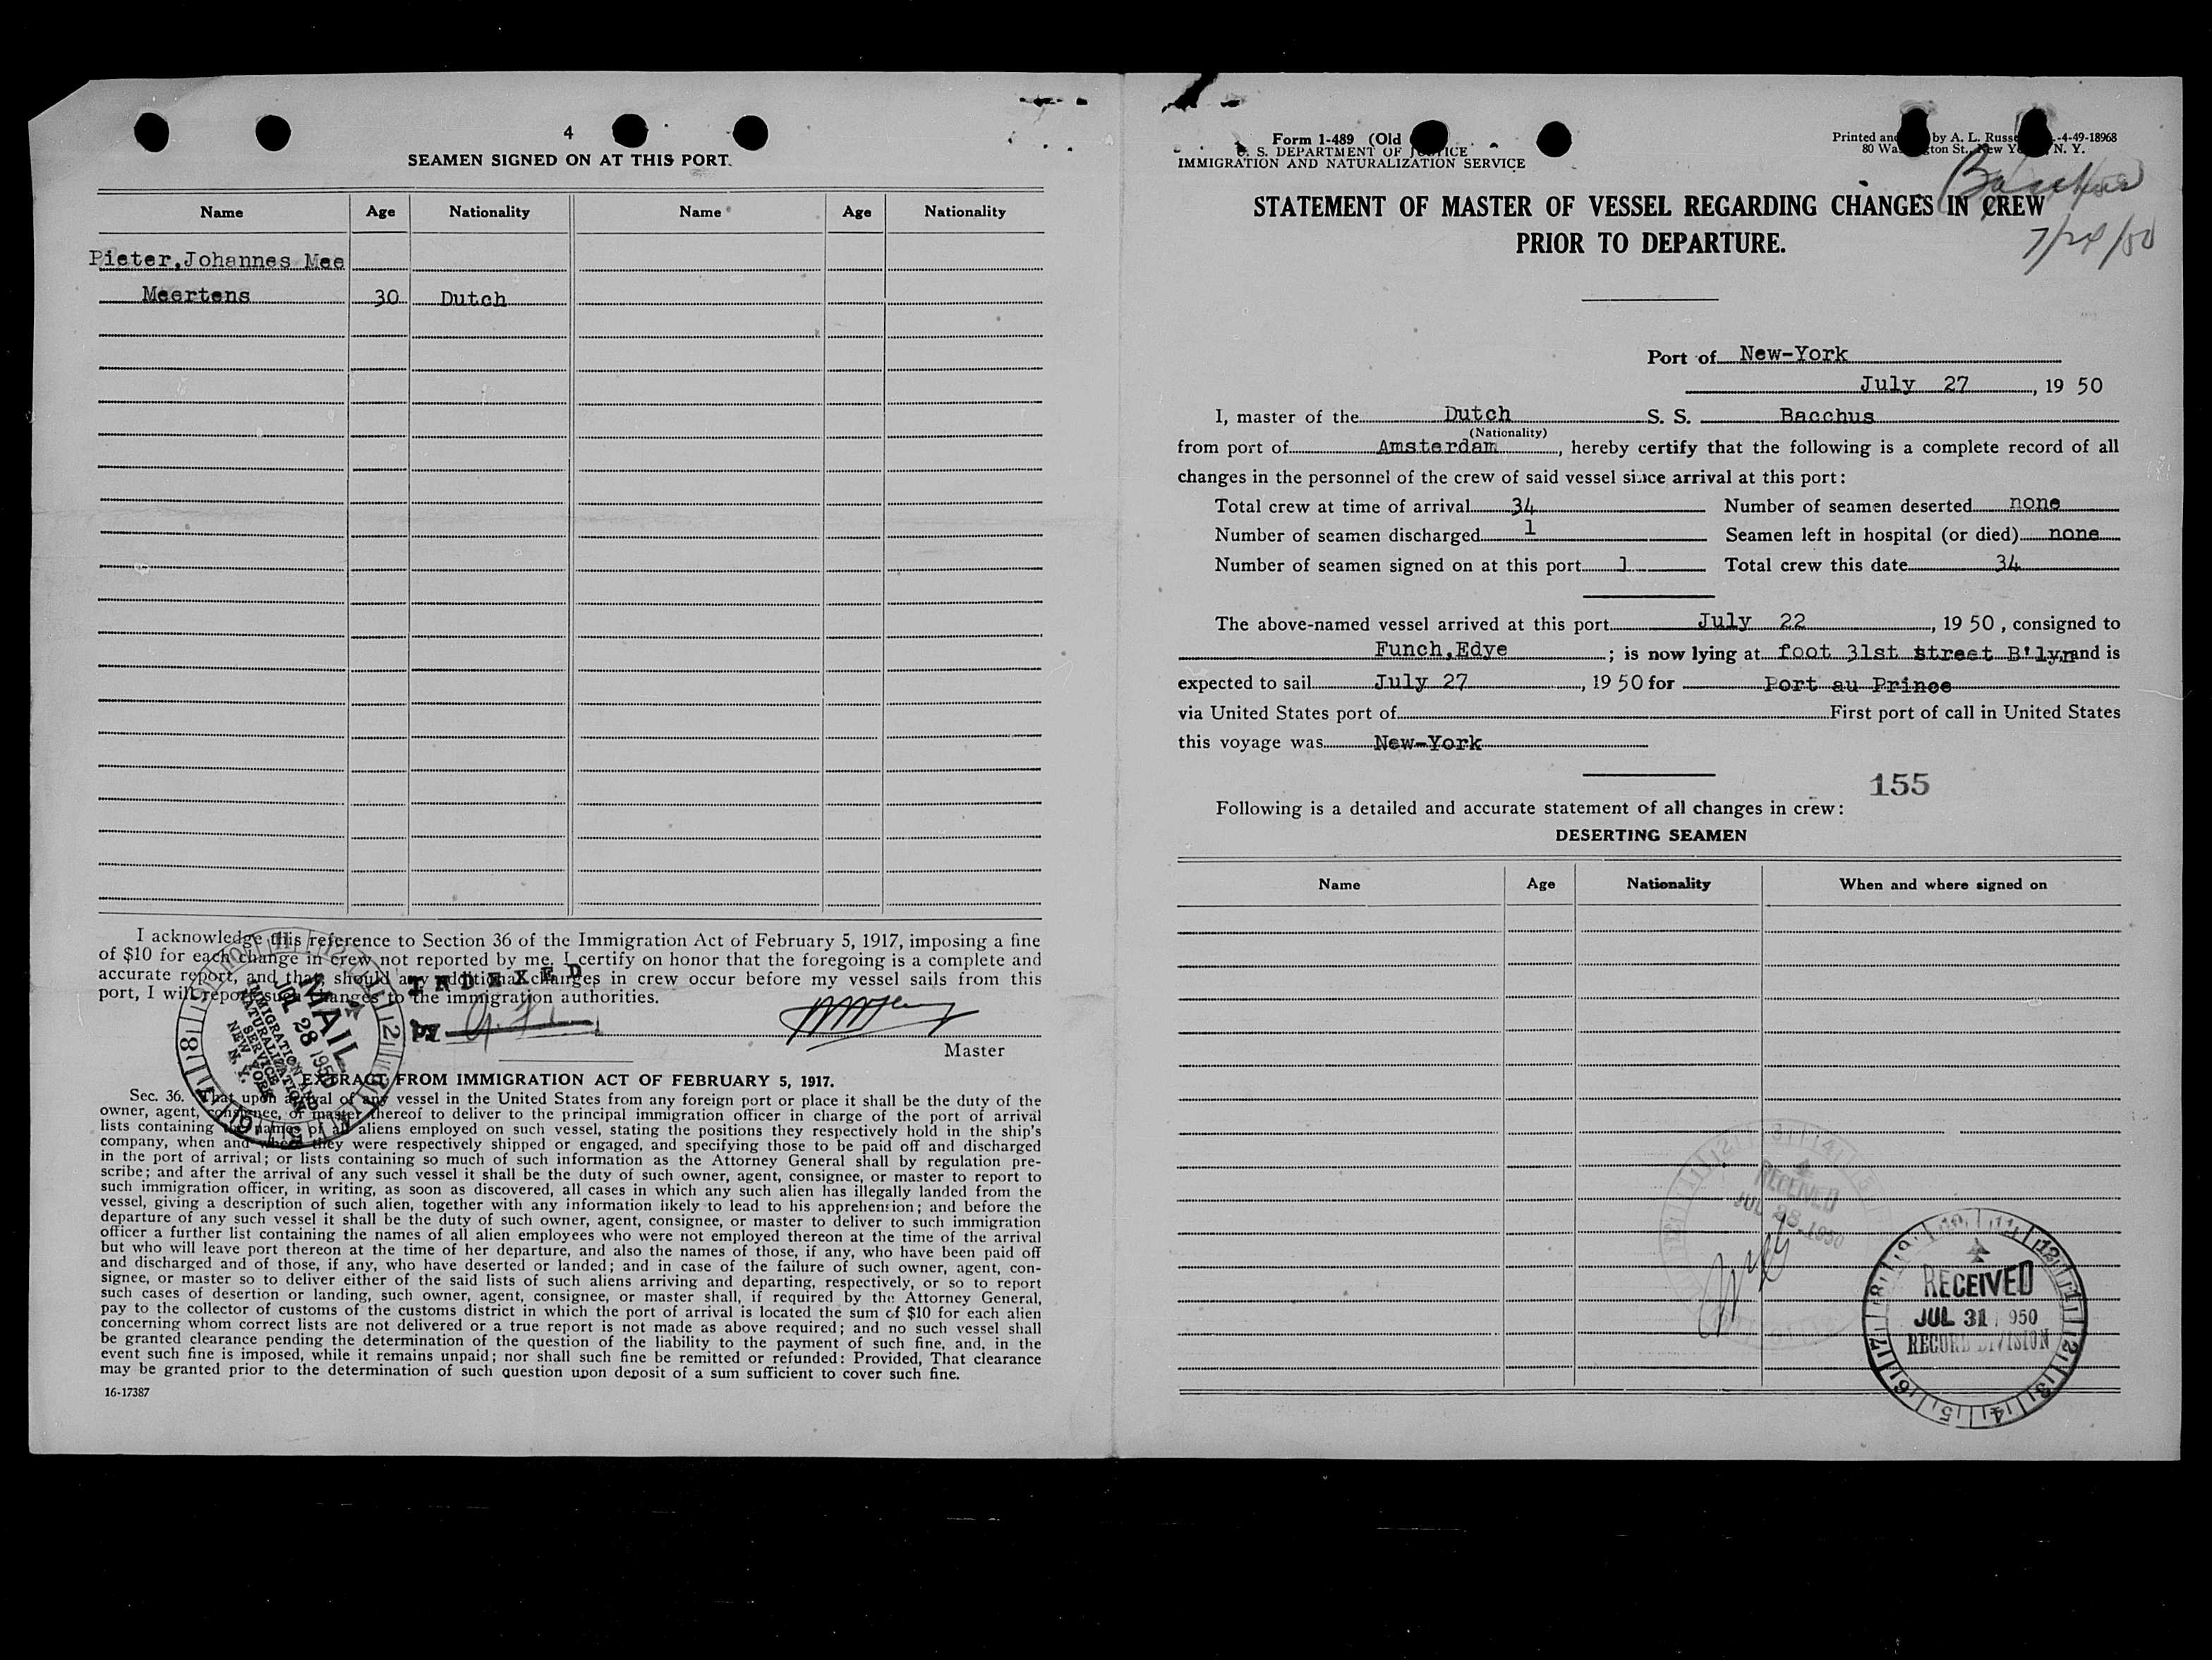 4
SEAMEN SIGNED ON AT THIS PORT.
Name Age Nationality Name Age Nationality
Pieter,Johannes Mee
Meertens 30 Dutch
I acknowledge this reference to Section 36 of the Immigration Act of February 5, 1917, imposing a fine
of $10 for each change in crew not reported by me. I certify on honor that the foregoing is a complete and
accurate report, and that, should any additional changes in crew occur before my vessel sails from this
port, I will report such changes to the immigration authorities.
INDEXED
by
Master
MAIL
JUL 28 1950
IMMIGRATION AND
NATURALIZATION
SERVICE
NEW YORK
N. Y.
EXTRACT FROM IMMIGRATION ACT OF FEBRUARY 5, 1917.
Sec. 36. That upon arrival of any vessel in the United States from any foreign port or place it shall be the duty of the
owner, agent, consignee, or master thereof to deliver to the principal immigration officer in charge of the port of arrival
lists containing the names of all aliens employed on such vessel, stating the positions they respectively hold in the ship's
company, when and where they were respectively shipped or engaged, and specifying those to be paid off and discharged
in the port of arrival; or lists containing so much of such information as the Attorney General shall by regulation pre-
scribe; and after the arrival of any such vessel it shall be the duty of such owner, agent, consignee, or master to report to
such immigration officer, in writing, as soon as discovered, all cases in which any such alien has illegally landed from the
vessel, giving a description of such alien, together with any information likely to lead to his apprehension; and before the
departure of any such vessel it shall be the duty of such owner, agent, consignee, or master to deliver to such immigration
officer a further list containing the names of all alien employees who were not employed thereon at the time of the arrival
but who will leave port thereon at the time of her departure, and also the names of those, if any, who have been paid off
and discharged and of those, if any, who have deserted or landed; and in case of the failure of such owner, agent, con-
signee, or master so to deliver either of the said lists of such aliens arriving and departing, respectively, or so to report
such cases of desertion or landing, such owner, agent, consignee, or master shall, if required by the Attorney General,
pay to the collector of customs of the customs district in which the port of arrival is located the sum of $10 for each alien
concerning whom correct lists are not delivered or a true report is not made as above required; and no such vessel shall
be granted clearance pending the determination of the question of the liability to the payment of such fine, and, in the
event such fine is imposed, while it remains unpaid; nor shall such fine be remitted or refunded: Provided, That clearance
may be granted prior to the determination of such question upon deposit of a sum sufficient to cover such fine.
16-17387
Form 1-489 (Old
U. S. DEPARTMENT OF JUSTICE
IMMIGRATION AND NATURALIZATION SERVICE
Printed and by A. L. Russ -4-49-18968
80 Washington St., New York, N. Y.
Bacchus
7/24/50
STATEMENT OF MASTER OF VESSEL REGARDING CHANGES IN CREW
PRIOR TO DEPARTURE.
Port of New-York
July 27, 19 50
I, master of the Dutch S. S. Bacchus
(Nationality)
from port of Amsterdam, hereby certify that the following is a complete record of all
changes in the personnel of the crew of said vessel since arrival at this port:
Total crew at time of arrival 34 Number of seamen deserted none
Number of seamen discharged 1 Seamen left in hospital (or died) none
Number of seamen signed on at this port 1 Total crew this date 34
The above-named vessel arrived at this port July 22, 19 50, consigned to
Funch,Edye; is now lying at foot 31st street B'lyn and is
expected to sail July 27, 19 50 for Port au Prince
via United States port of First port of call in United States
this voyage was New-York
155
Following is a detailed and accurate statement of all changes in crew:
DESERTING SEAMEN
Name Age Nationality When and where signed on
RECEIVED
JUL 28 1950
RECEIVED
JUL 31 1950
RECORD DIVISION